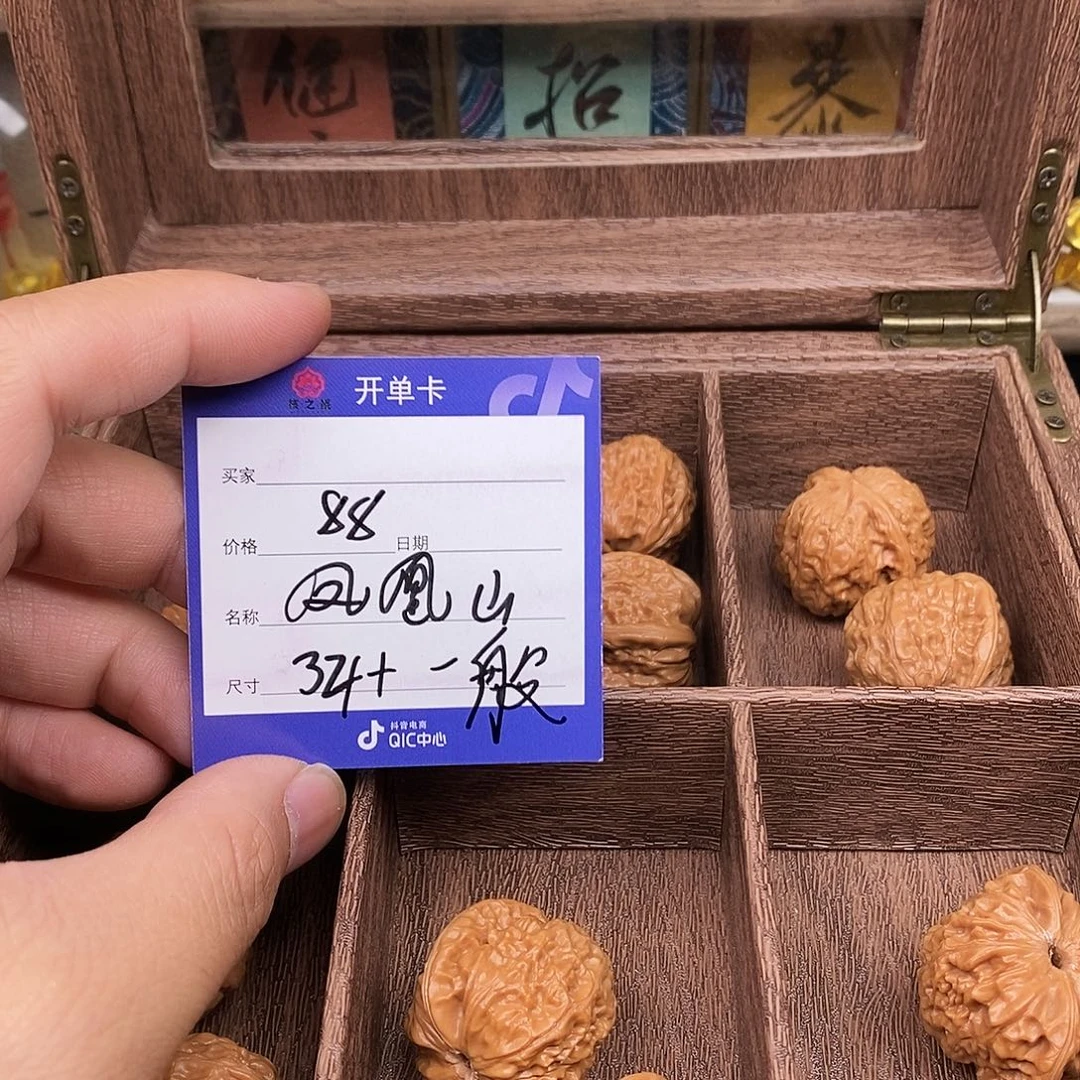 健 招 恭
开单卡
核之染
买家
价格 88 日期
名称 凤凰山
尺寸 34+ 一般
抖音电商
QIC中心